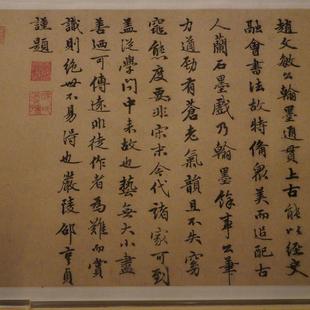 趙文敏公翰墨通貫上古能以經史
融會書法故特脩眾美而追配古
人蘭石墨戲乃翰墨餘事公筆
力遒勁有蒼老氣韻且不失窈
窕態度要非宋末今代諸家可到
蓋從學問中來故也藝無大小盡
善迺可傳遠非徒作者為難而賞
識則絕世不易得也嚴陵邵亨貞
謹題